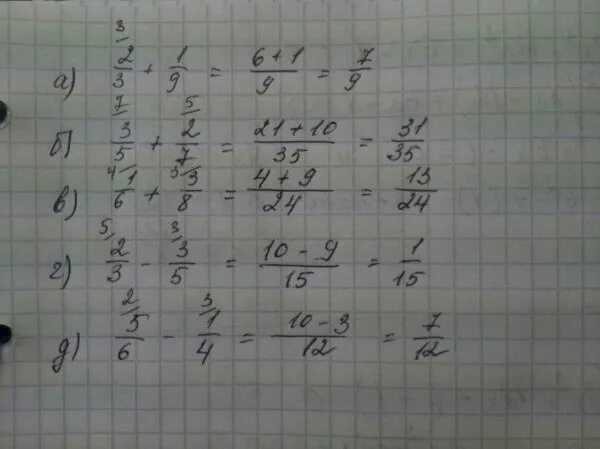 а) ³/2/3 + 1/9 = (6+1)/9 = 7/9
б) ⁷/3/5 + ⁵/2/7 = (21+10)/35 = 31/35
в) ⁴/1/6 + ³/3/8 = (4+9)/24 = 13/24
г) ⁵/2/3 - ³/3/5 = (10-9)/15 = 1/15
д) ²/5/6 - ³/1/4 = (10-3)/12 = 7/12